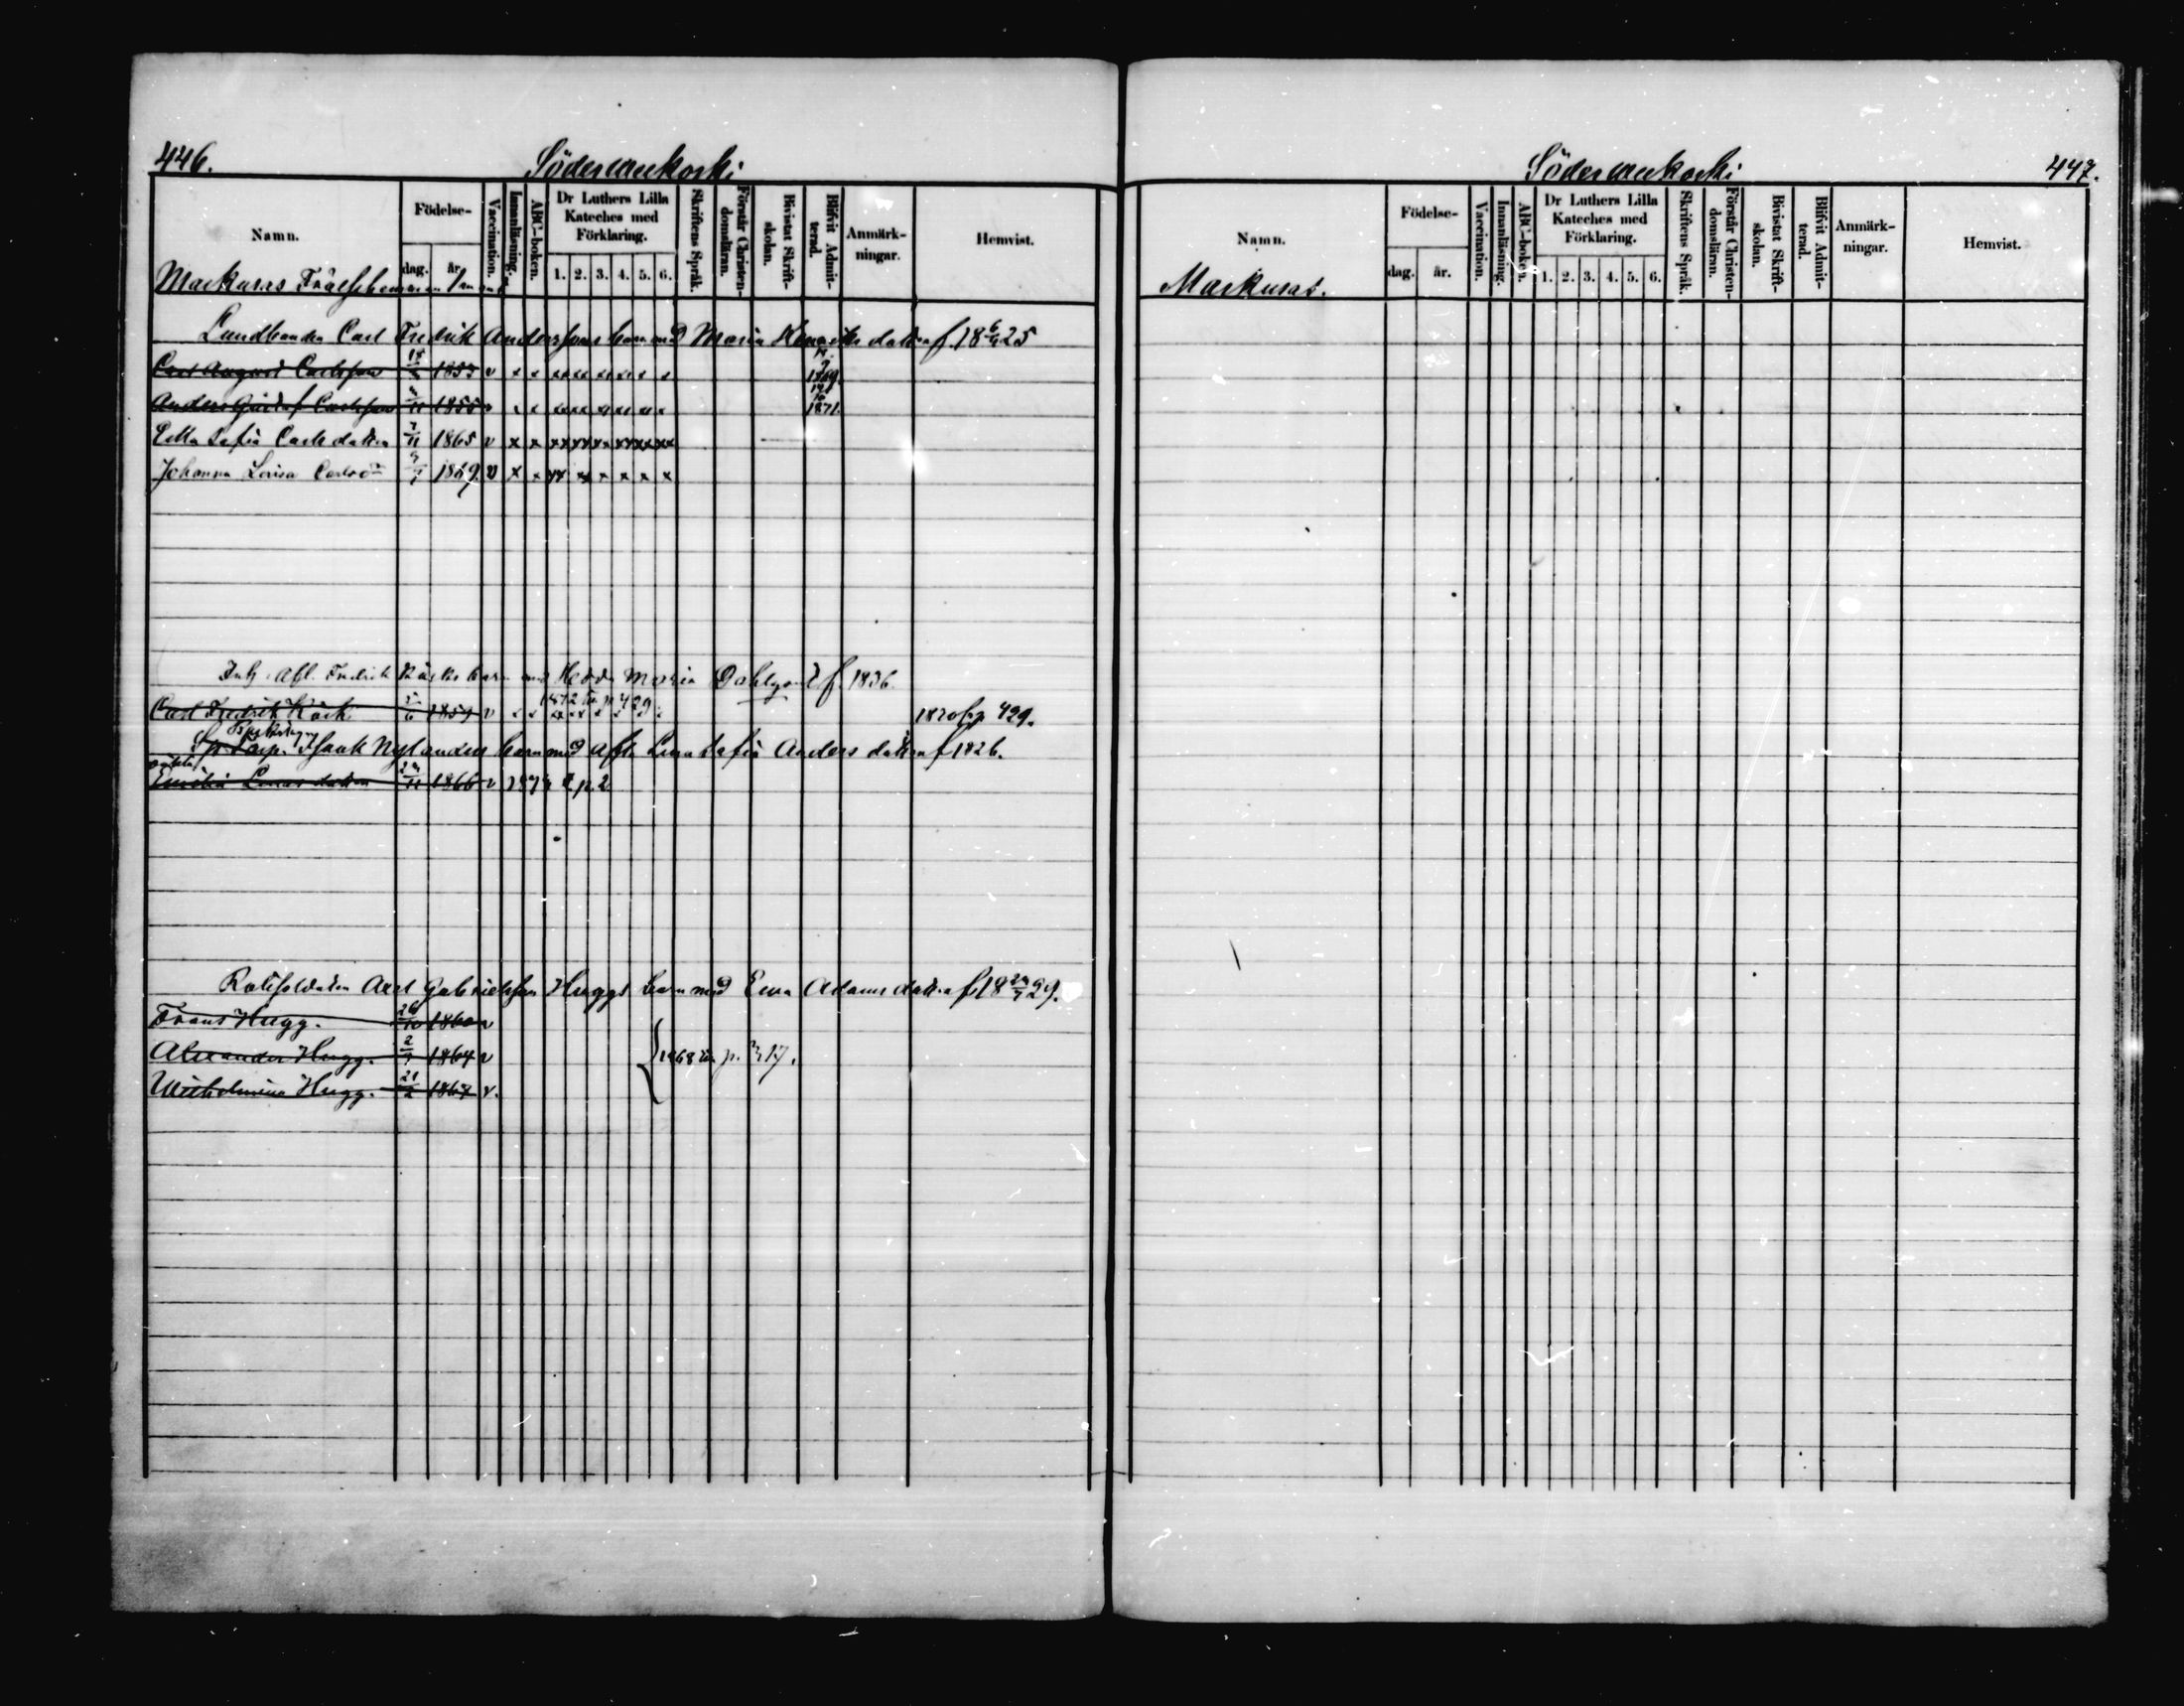 446. Södervekoski
Namn. Födelse- dag. år. Vaccination. Innanläsning. ABC-boken. Dr Luthers Lilla Kateches med Förklaring. 1. 2. 3. 4. 5. 6. Skriftens Språk. Förstår Christendomsläran. Bivistat Skriftskolan. Blifvit Admitterad. Anmärkningar. Hemvist.
Markusas Frälsehemman
Landbonden Carl Fredrik Anderssons barn med Maria Henriksdotter f. 18 25
Carl August Carlsson 1853 v x x 1869.
Anders Gustaf Carlsson 1855 v x x 1871.
Edla Sofia Carlsdotter 7/11 1865 v x x
Johanna Lovisa Carlsdr 1869. v x x
Inh. Afl. Fredrik Räcks barn med Hedda Maria Dahlgren f. 1836.
1872 p 429
Carl Fredrik Räck 5/6 1859 v 1870 p 429.
Isaak Nylanders barn med Lena Sofia Andersdotter f 1826.
oäkta
Emilia Lenasdotter 1866 v 1874 p. 2
Rotesoldaten Axel Gabrielsson Huggs barn med Eva Adamsdotter f 18 29.
Frans Hugg. 26/10 1860 v
Alexander Hugg. 1864 v 1868 p. 317.
Wilhelmina Hugg. 21/2 1867 v.
Södervekoski 447.
Namn. Födelse- dag. år. Vaccination. Innanläsning. ABC-boken. Dr Luthers Lilla Kateches med Förklaring. 1. 2. 3. 4. 5. 6. Skriftens Språk. Förstår Christendomsläran. Bivistat Skriftskolan. Blifvit Admitterad. Anmärkningar. Hemvist.
Markusas.